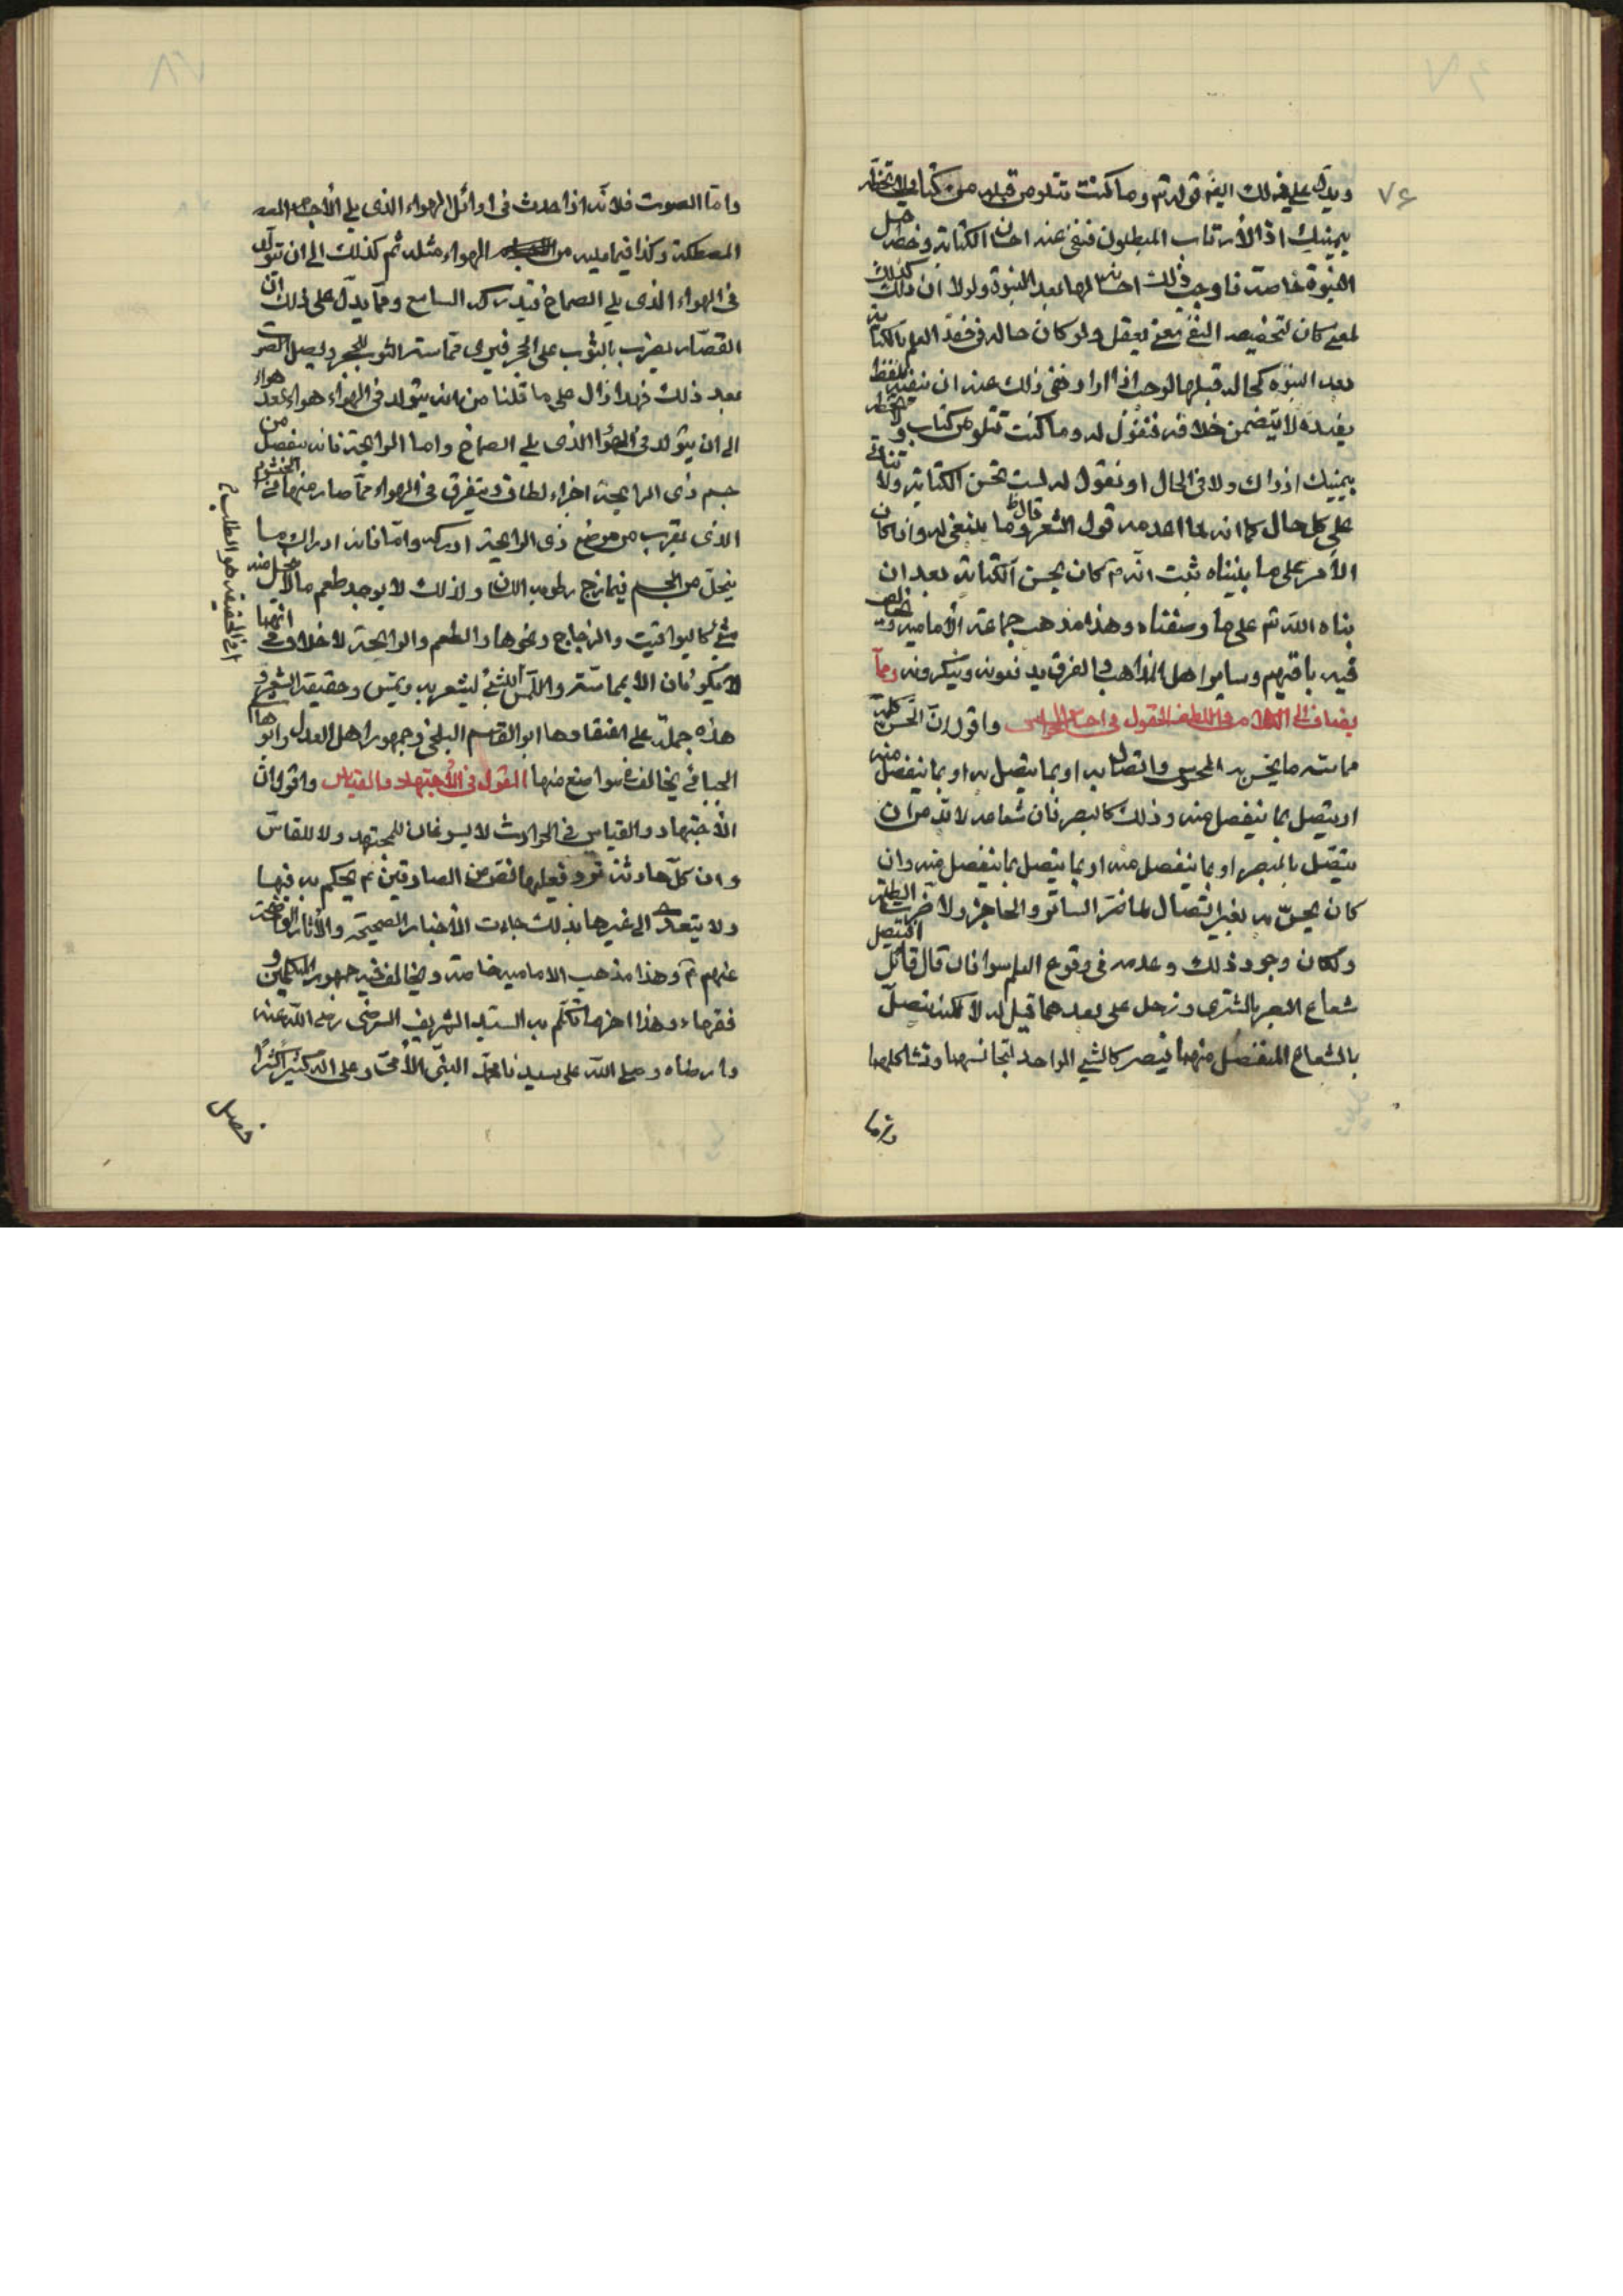 ٧٤
ويدل على ذلك ايضا قوله تم وما كنت تتلو من قبله من كتاب ولا تخطه
بيمينك اذا لأرتاب المبطلون فنفى عنه احسان الكتابة وخطه قبل
النبوة خاصة فاوجب ذلك احسانه لها بعد النبوة ولولا ان ذلك كذلك
لمعے كان لتخصيصه النفي معنى يعقل ولو كان حاله فى فقد العلم بالكتابة
بعد النبوة كحاله قبلها لوجب اذا اراد نفى ذلك عنه ان ينفيه بلفظ
يفيده لا يتضمن خلافه فتقول له وما كنت تتلو من كتاب ولا تخطه
بيمينك اذ ذاك ولا فى الحال او نقول له لست تحسن الكتابة ولا تتأتى
على كل حال كما انه لما اعدمه قول الشعر قال وما ينبغى له وان كان
الأمر على ما بيناه ثبت انه ص كان يحسن الكتابة بعد ان
نبأه الله تم على ما وصفناه وهذا مذهب جماعة الأمامية ويخالف
فيه باقيهم وساير اهل المذاهب والفرق يدفعونه وينكرونه ومما
يضاف الى الكلام فى اللطيف القول فى احساس الحواس واقول ان الحس كله
مماسة ما يحس به المحسوس واتصال به او بما يتصل به او بما ينفصل منه
او يتصل بما ينفصل منه وذلك كالبصر فان شعاعه لا بد من ان
يتصل بالمبصر او بما ينفصل منه او بما يتصل بما ينفصل منه وان
كان يحس به بغير اتصال لما ضر الساتر والحاجز ولا ضرت الظلمة
ولكان وجود ذلك وعدمه فى وقوع العلم سوا فان قال قائل افيتصل
شعاع البصر بالمشترى وزحل على بعدهما قيل له لا لكنه يتصل
بالشعاع المنفصل منهما فيصير كالشي الواحد لتجانسهما وتشاكلهما
واما
واما الصوت فلانه اذا حدث فى اوائل الهواء الذى يلي الأجسام
المصطكة وكذا فيما يليه من الهواء مثله ثم كذلك الى ان يتولد
فى الهواء الذى يلي الصماخ فيدركه السامع ومما يدل على ذلك ان
القصار يضرب بالثوب على الحجر فيرى مماسة الثوب للحجر ويصل الصوت
بعد ذلك فهذا دال على ما قلنا من انه يتولد فى الهواء هواء بعد هواء
الى ان يتولد فى الهواء الذى يلي الصماخ واما الرايحة فانه ينفصل من
جسم ذى الرايحة اجزاء لطاف ويتفرق فى الهواء فما صار منها فى الخيشوم
الذى يقرب من موضع ذى الرايحة ادركه واما فانه ادراك ما
ينحل من الجسم فيمازج رطوبه اللسان ولذلك لا يوجد طعم ما لا ينحل منه
شئ كاليواقيت والزجاج ونحوها والطعم والرايحة لا خلاف فى انهما
لا يكونان الا بمماسة واللمس للشئ ليشعر به ويحس وحقيقة الشعور
هذه جملة على اعتقادها ابو القسم البلخى وجمهور اهل العدل وابو ها
الجبائى يخالف فى مواضع منها القول فى الأجتهاد والقياس واقول ان
الأجتهاد والقياس فى الحوادث لا يسوغان للمجتهد ولا للقاس
وان كل حادثة ترد فعليها نص من الصادقين ع يحكم به فيها
ولا يتعدى الى غيرها بذلك جاءت الأخبار الصحيحة والآثار الواضحة
عنهم ع وهذا مذهب الامامية خاصة ويخالف فيه جمهور المتكلمين و
فقهاء وهذا اخرها تكلم به السيد الشريف الرضى رضى الله عنه
وارضاه وصلى الله على سيدنا محمد النبى الأمى وعلى اله كثيرا كثيرا
فصل